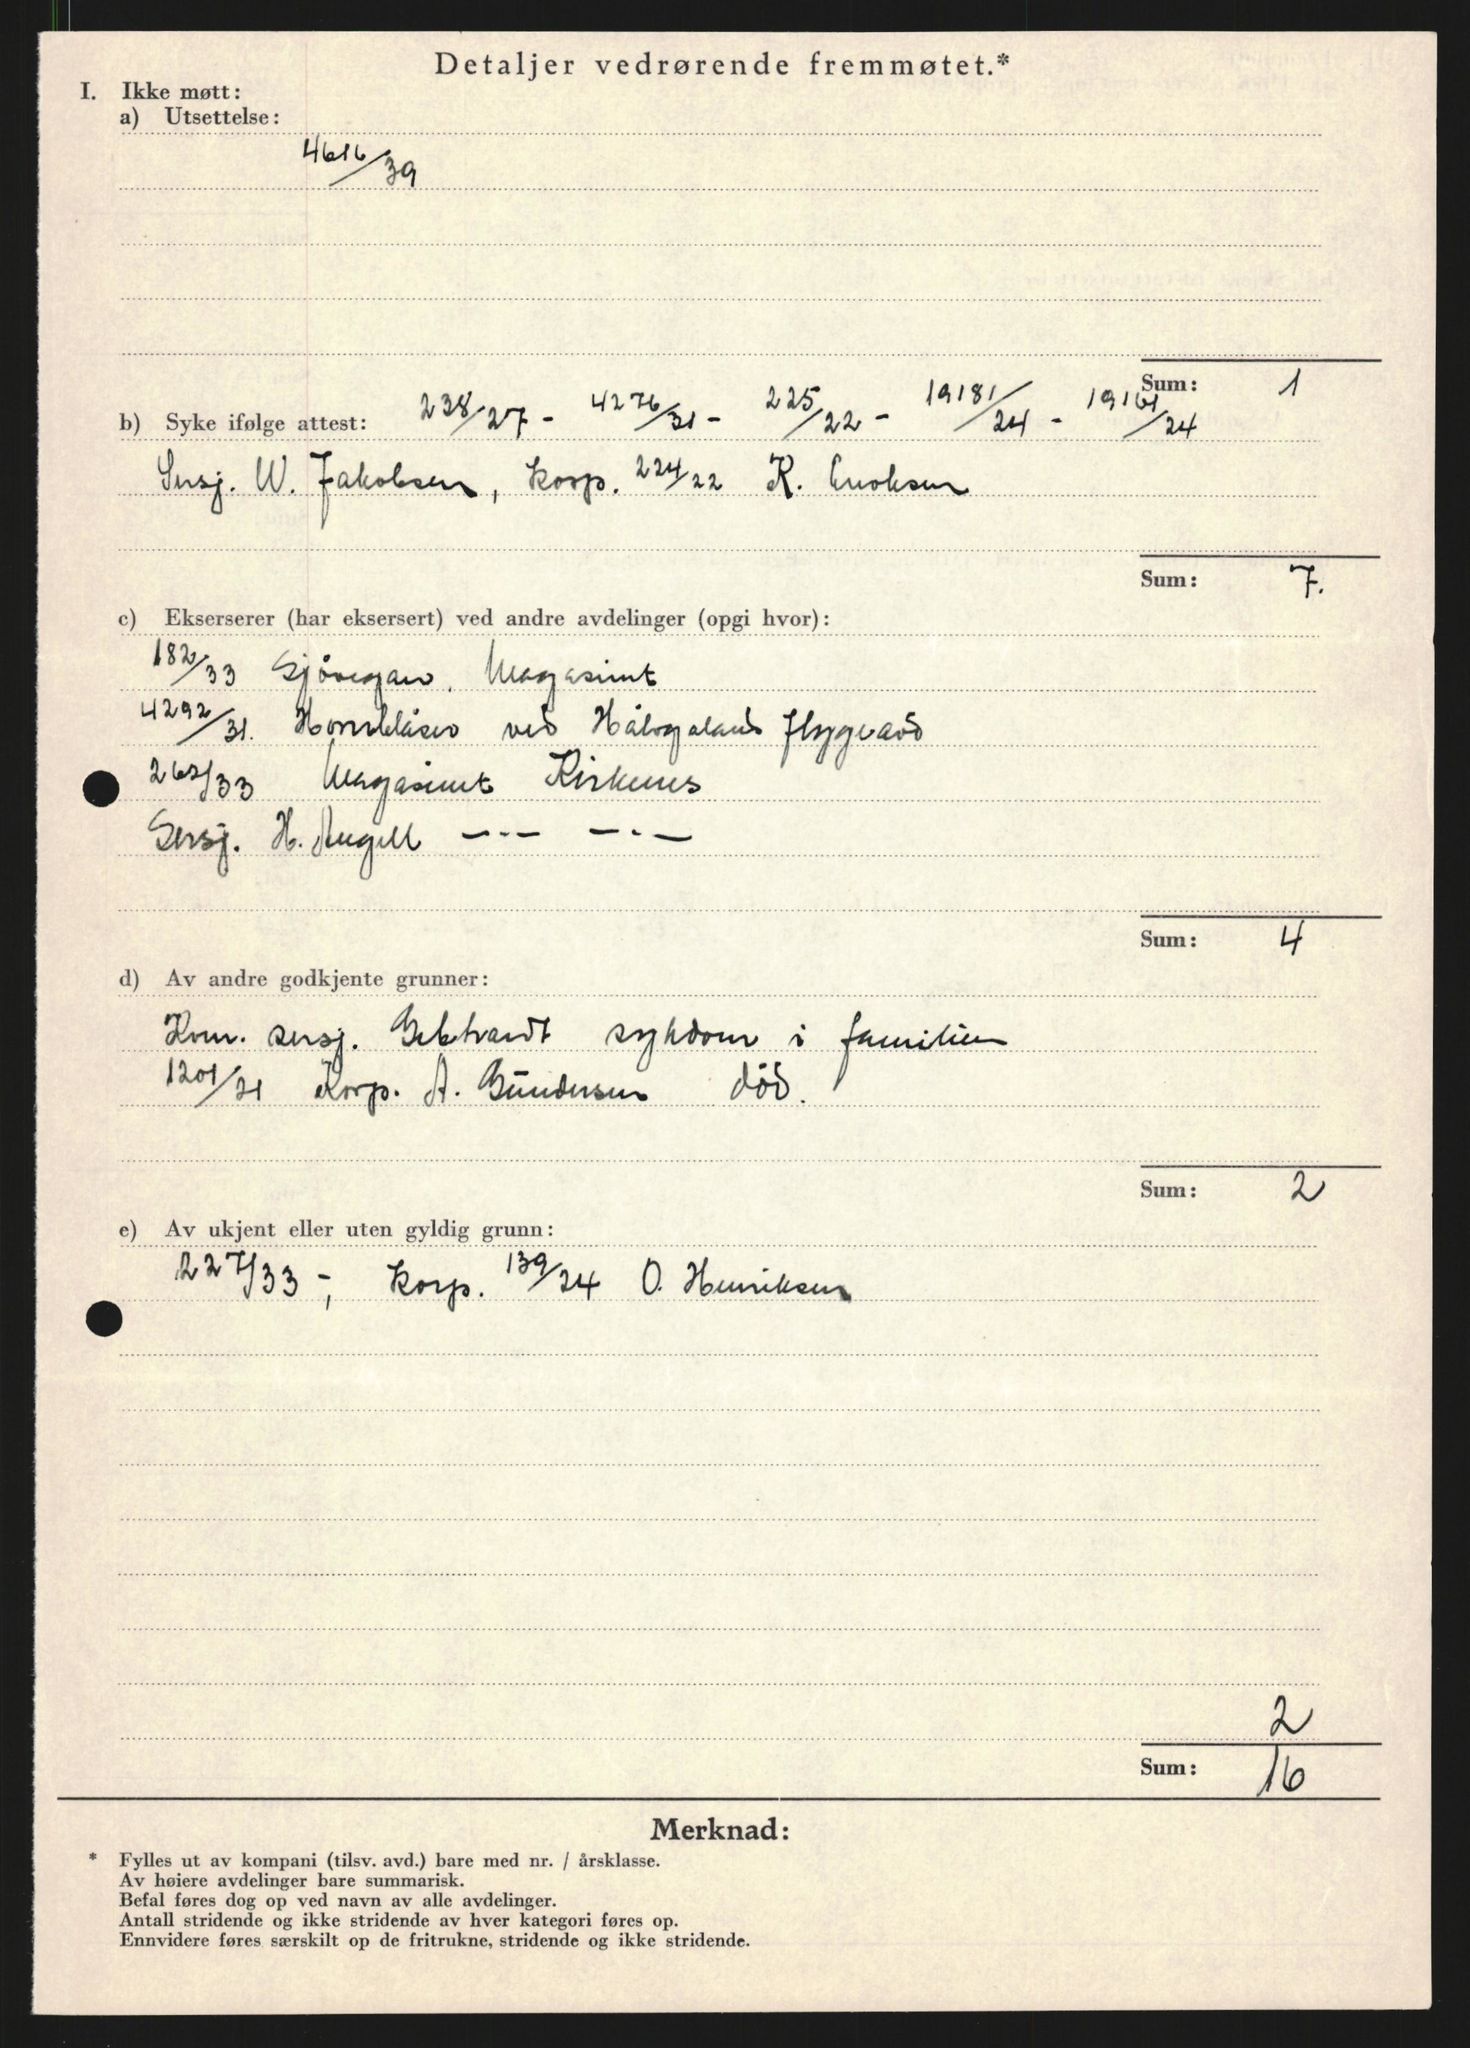 Detaljer vedrørende fremmøtet.*
I. Ikke møtt:
a) Utsettelse:
4616/39
Sum: 1
b) Syke ifølge attest: 238/27 - 4276/31 - 225/22 - 19181/24 - 19161/24
Sersj. W. Jakobsen, Korp. 224/22 K. Enoksen
Sum: 7.
c) Ekserserer (har eksersert) ved andre avdelinger (opgi hvor):
182/33 Sjøvegan, Magasinet
4292/31. Hornblåser ved Hålogaland flygeavd
262/33 Magasinet Kirkenes
Sersj. H. Angell —·-— —·—
Sum: 4
d) Av andre godkjente grunner:
Kom. sersj. Gebhardt sykdom i familien
1201/21 Korp. A. Gundersen død.
Sum: 2
e) Av ukjent eller uten gyldig grunn:
227/33 -, Korp. 139/24 O. Henriksen
2
Sum: 16
Merknad:
* Fylles ut av kompani (tilsv. avd.) bare med nr. / årsklasse.
Av høiere avdelinger bare summarisk.
Befal føres dog op ved navn av alle avdelinger.
Antall stridende og ikke stridende av hver kategori føres op.
Ennvidere føres særskilt op de fritrukne, stridende og ikke stridende.